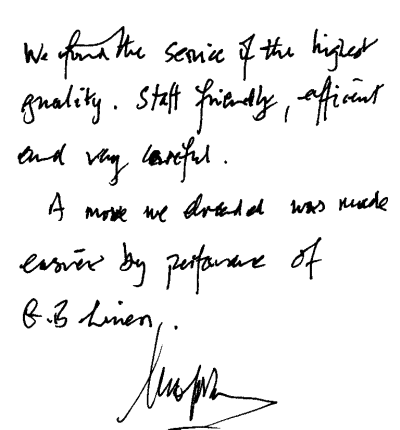 We found the service of the highest
quality. Staff friendly, efficient
and very careful.
A move we dreaded was made
easier by performance of
G.B Liners.